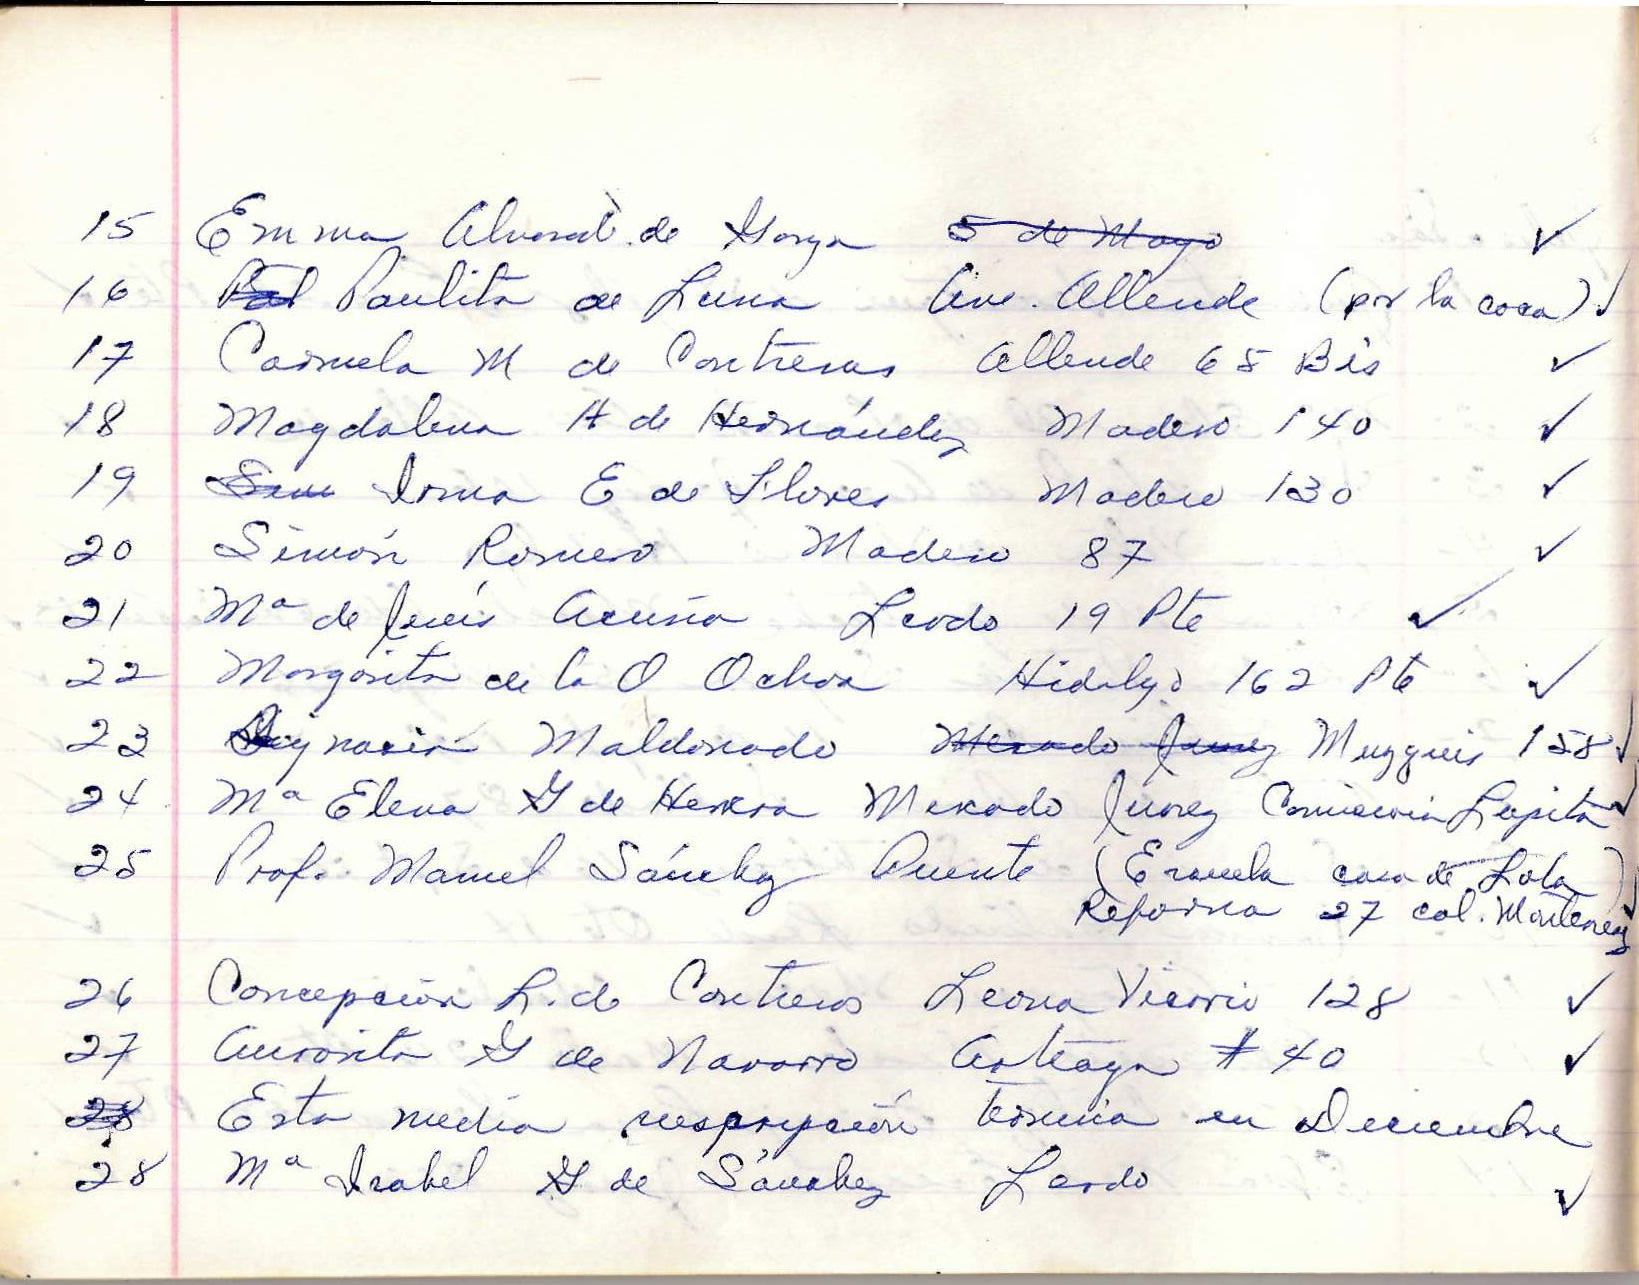 15 Emma Alvarad. de Garza 5 de Mayo ✓
16 Paulita de Luna Ave. Allende (por la coca) ✓
17 Carmela M de Contreras Allende 65 Bis ✓
18 Magdalena H de Hernández Madero 140 ✓
19 Irma E de Flores Madero 130 ✓
20 Simón Romero Madero 87 ✓
21 Mª de Jesús Acuña Lerdo 19 Pte ✓
22 Margarita de la O Ochoa Hidalgo 162 Pte ✓
23 Ignacia Maldonado Mercado Juárez Muzquis 158 ✓
24 Mª Elena G de Herrera Mercado Júarez Carniceria Lupita ✓
25 Prof. Manuel Sánchez Puente (Escuela casa de Lola) ✓
Reforma 27 col. Monterrey
26 Concepción L. de Contreras Leona Vicario 128 ✓
27 Aurorita G de Navarro Arteaga # 40 ✓
28 Esta media suscripción termina en Diciembre
28 Mª Isabel G de Sánchez Lerdo ✓